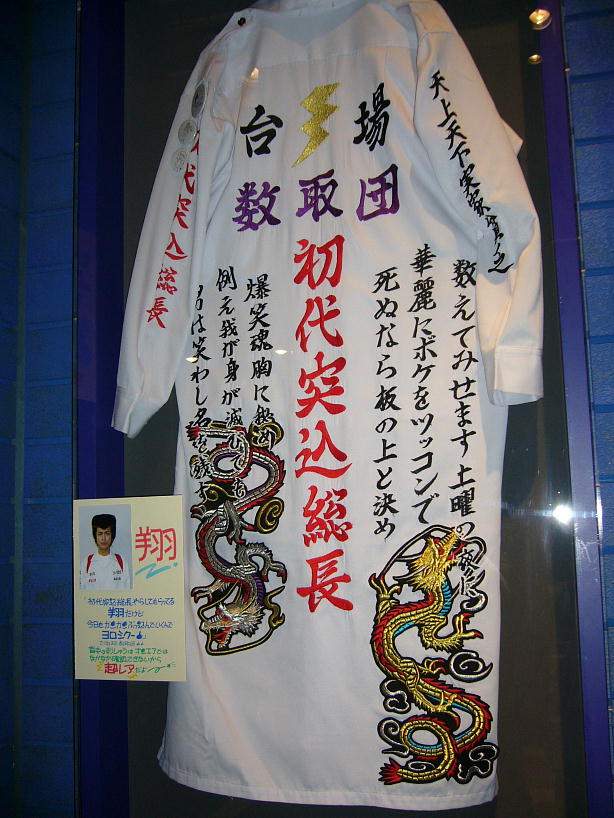 台場
数取団
初代突込総長
天上天下
数えてみせます土曜の夜に
華麗にボケをツッコンで
死ぬなら板の上と決め
爆笑魂胸に
例え我が身が滅びても
名は笑わし名を残す
代突込総長
翔
初代突込総長やらしてもらってる
翔だけど
今日もガ
ヨロシクー
超レアだよ